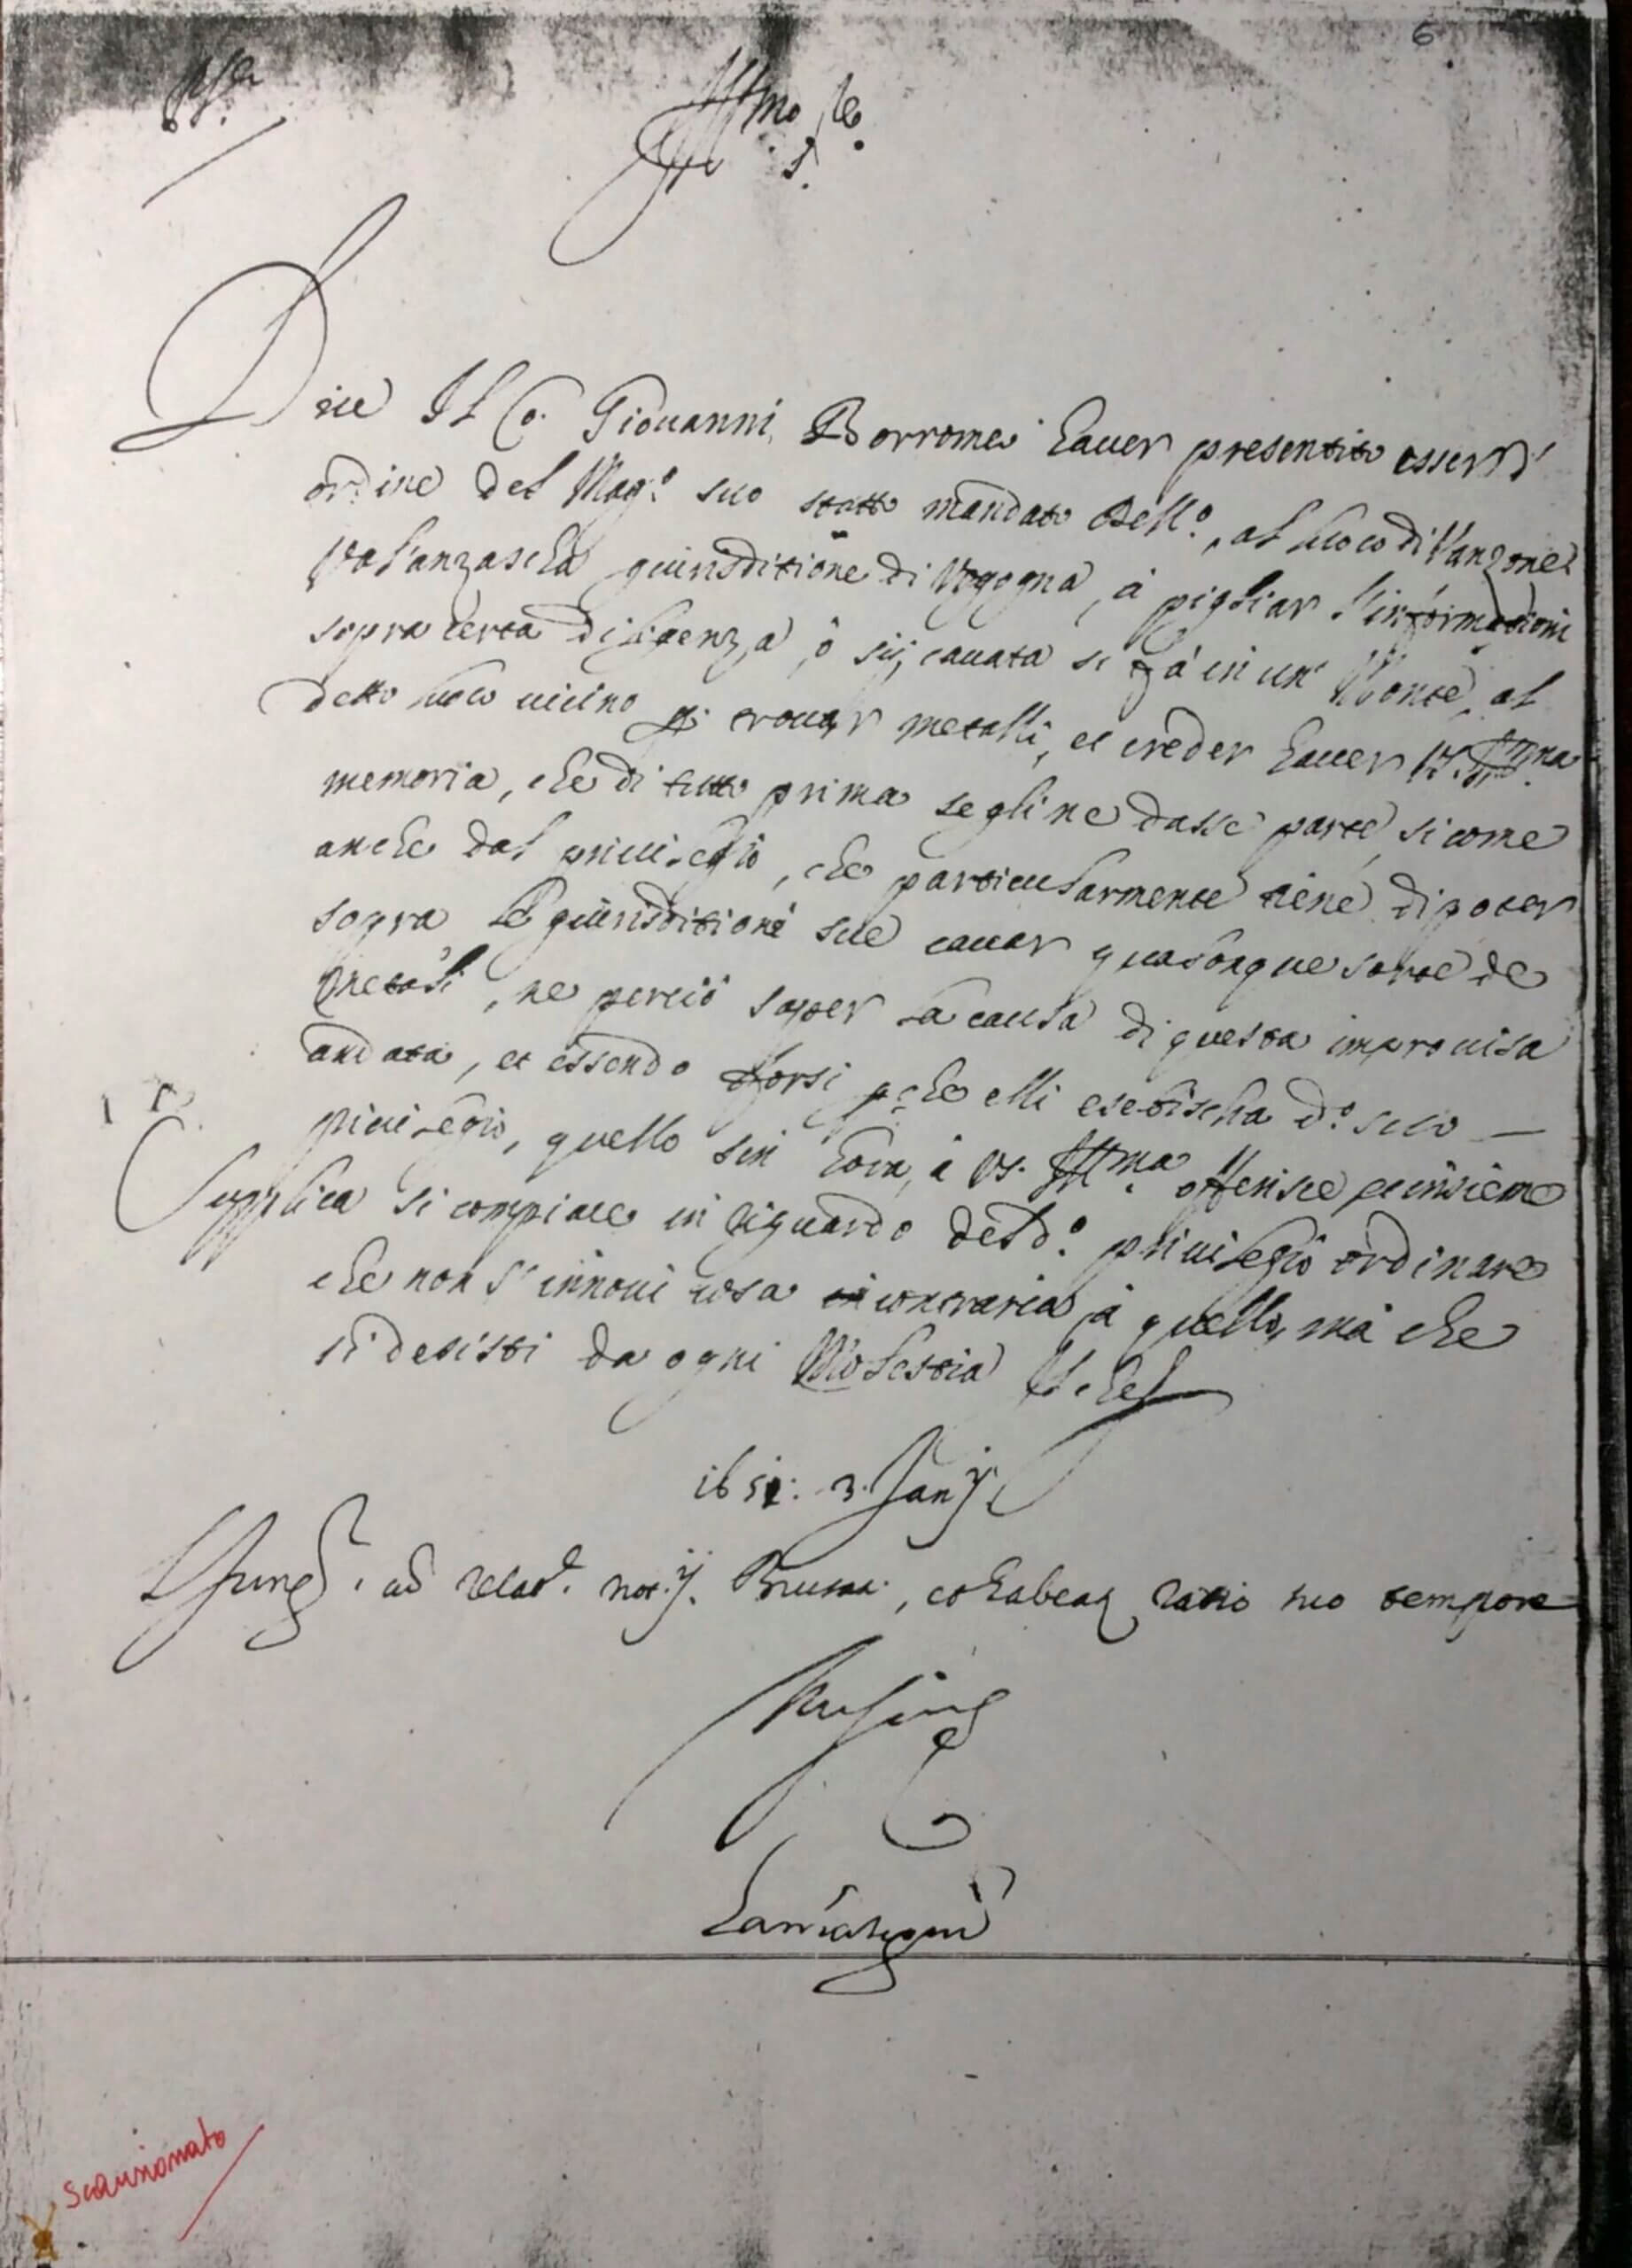 6
Ill.mo Se.
S.
Dice Il Co. Giovanni Borromeo haver presentito esser d'
ordine del Mag.º suo stato mandato al luoco di Vanzone
Val'anzascha giurisditione di Vogogna, à pigliar l'informationi
sopra certa diligenza, ò sij cavata si fà in un' Monte, al
detto luoco vicino p. trovar metalli, et creder haver V.S. Ill.ma
memoria, che di tutto prima se gli ne dasse parte, si come
anche dal privilegio, che particularmente tiene, di poter
sopra le giurisditioni sue cavar qualonque sorte de
metali, ne perciò saper la causa di questa improvisa
andata, et essendo forsi p.che elli esebischa d.º suo
privilegio, quello sin hora, à V.S. Ill.ma offerisce, et insieme
Supplica si compiace in riguardo del d.º privilegio ordinare
che non s'innovi cosa in contraria à quello, mà che
si desisti da ogni Molestia Il che
1651: 3. Janij.
ad relat. not.ij. , et habeat ratio suo tempore
scansionato